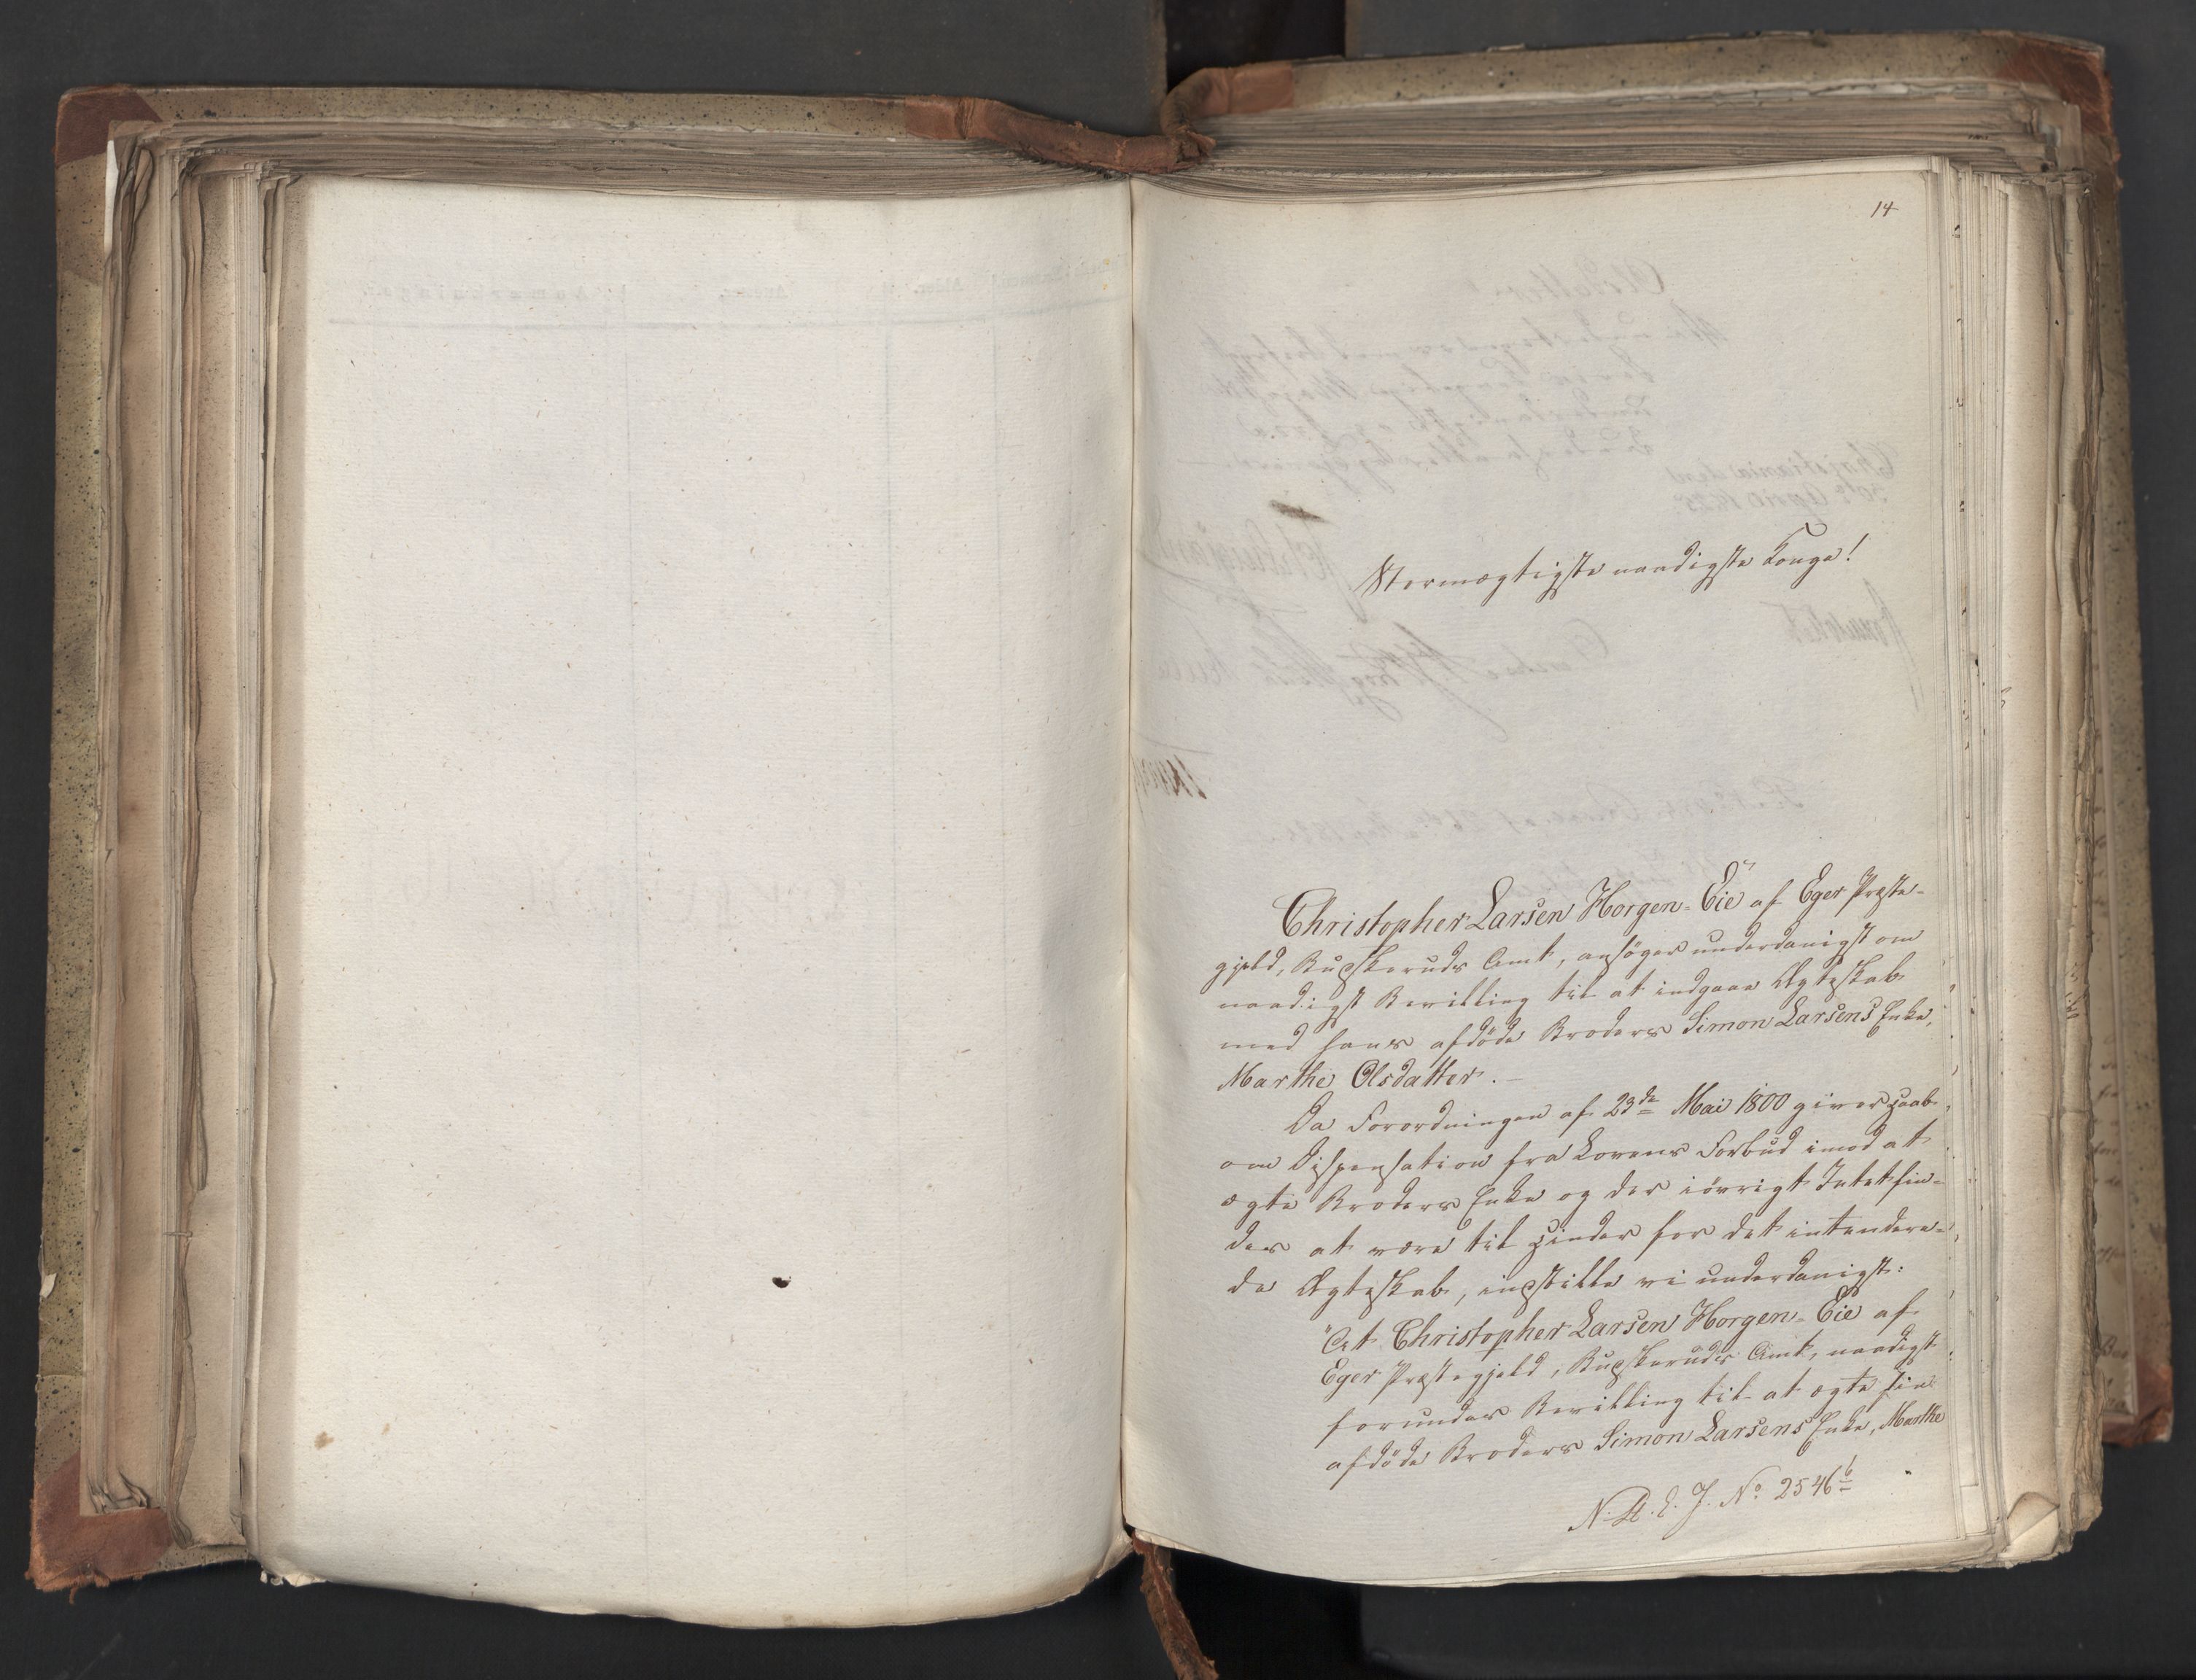 14
Stormægtigste naadigste Konge!
Christopher Larsen Horgen-Eie af Eger Præste-
gjeld, Buskeruds Amt, ansøger underdanigst om
naadigst Bevilling til at indgaae Ægteskab
med hans afdøde Broders Simon Larsens Enke,
Marthe Olsdatter. —
Da Forordningen af 23de Mai 1800 giver Haab
om Dispensation fra Lovens Forbud imod at
ægte Broders Enke og der iøvrigt Intet fin-
des at være til Hinder for det intendere-
de Ægteskab, indstille vi underdanigst:
"At Christopher Larsen Horgen-Eie af
Eger Præstegjeld, Buskeruds Amt, naadigst
forundes Bevilling til at ægte sin
afdøde Broders Simon Larsens Enke, Marthe
No 2546 b